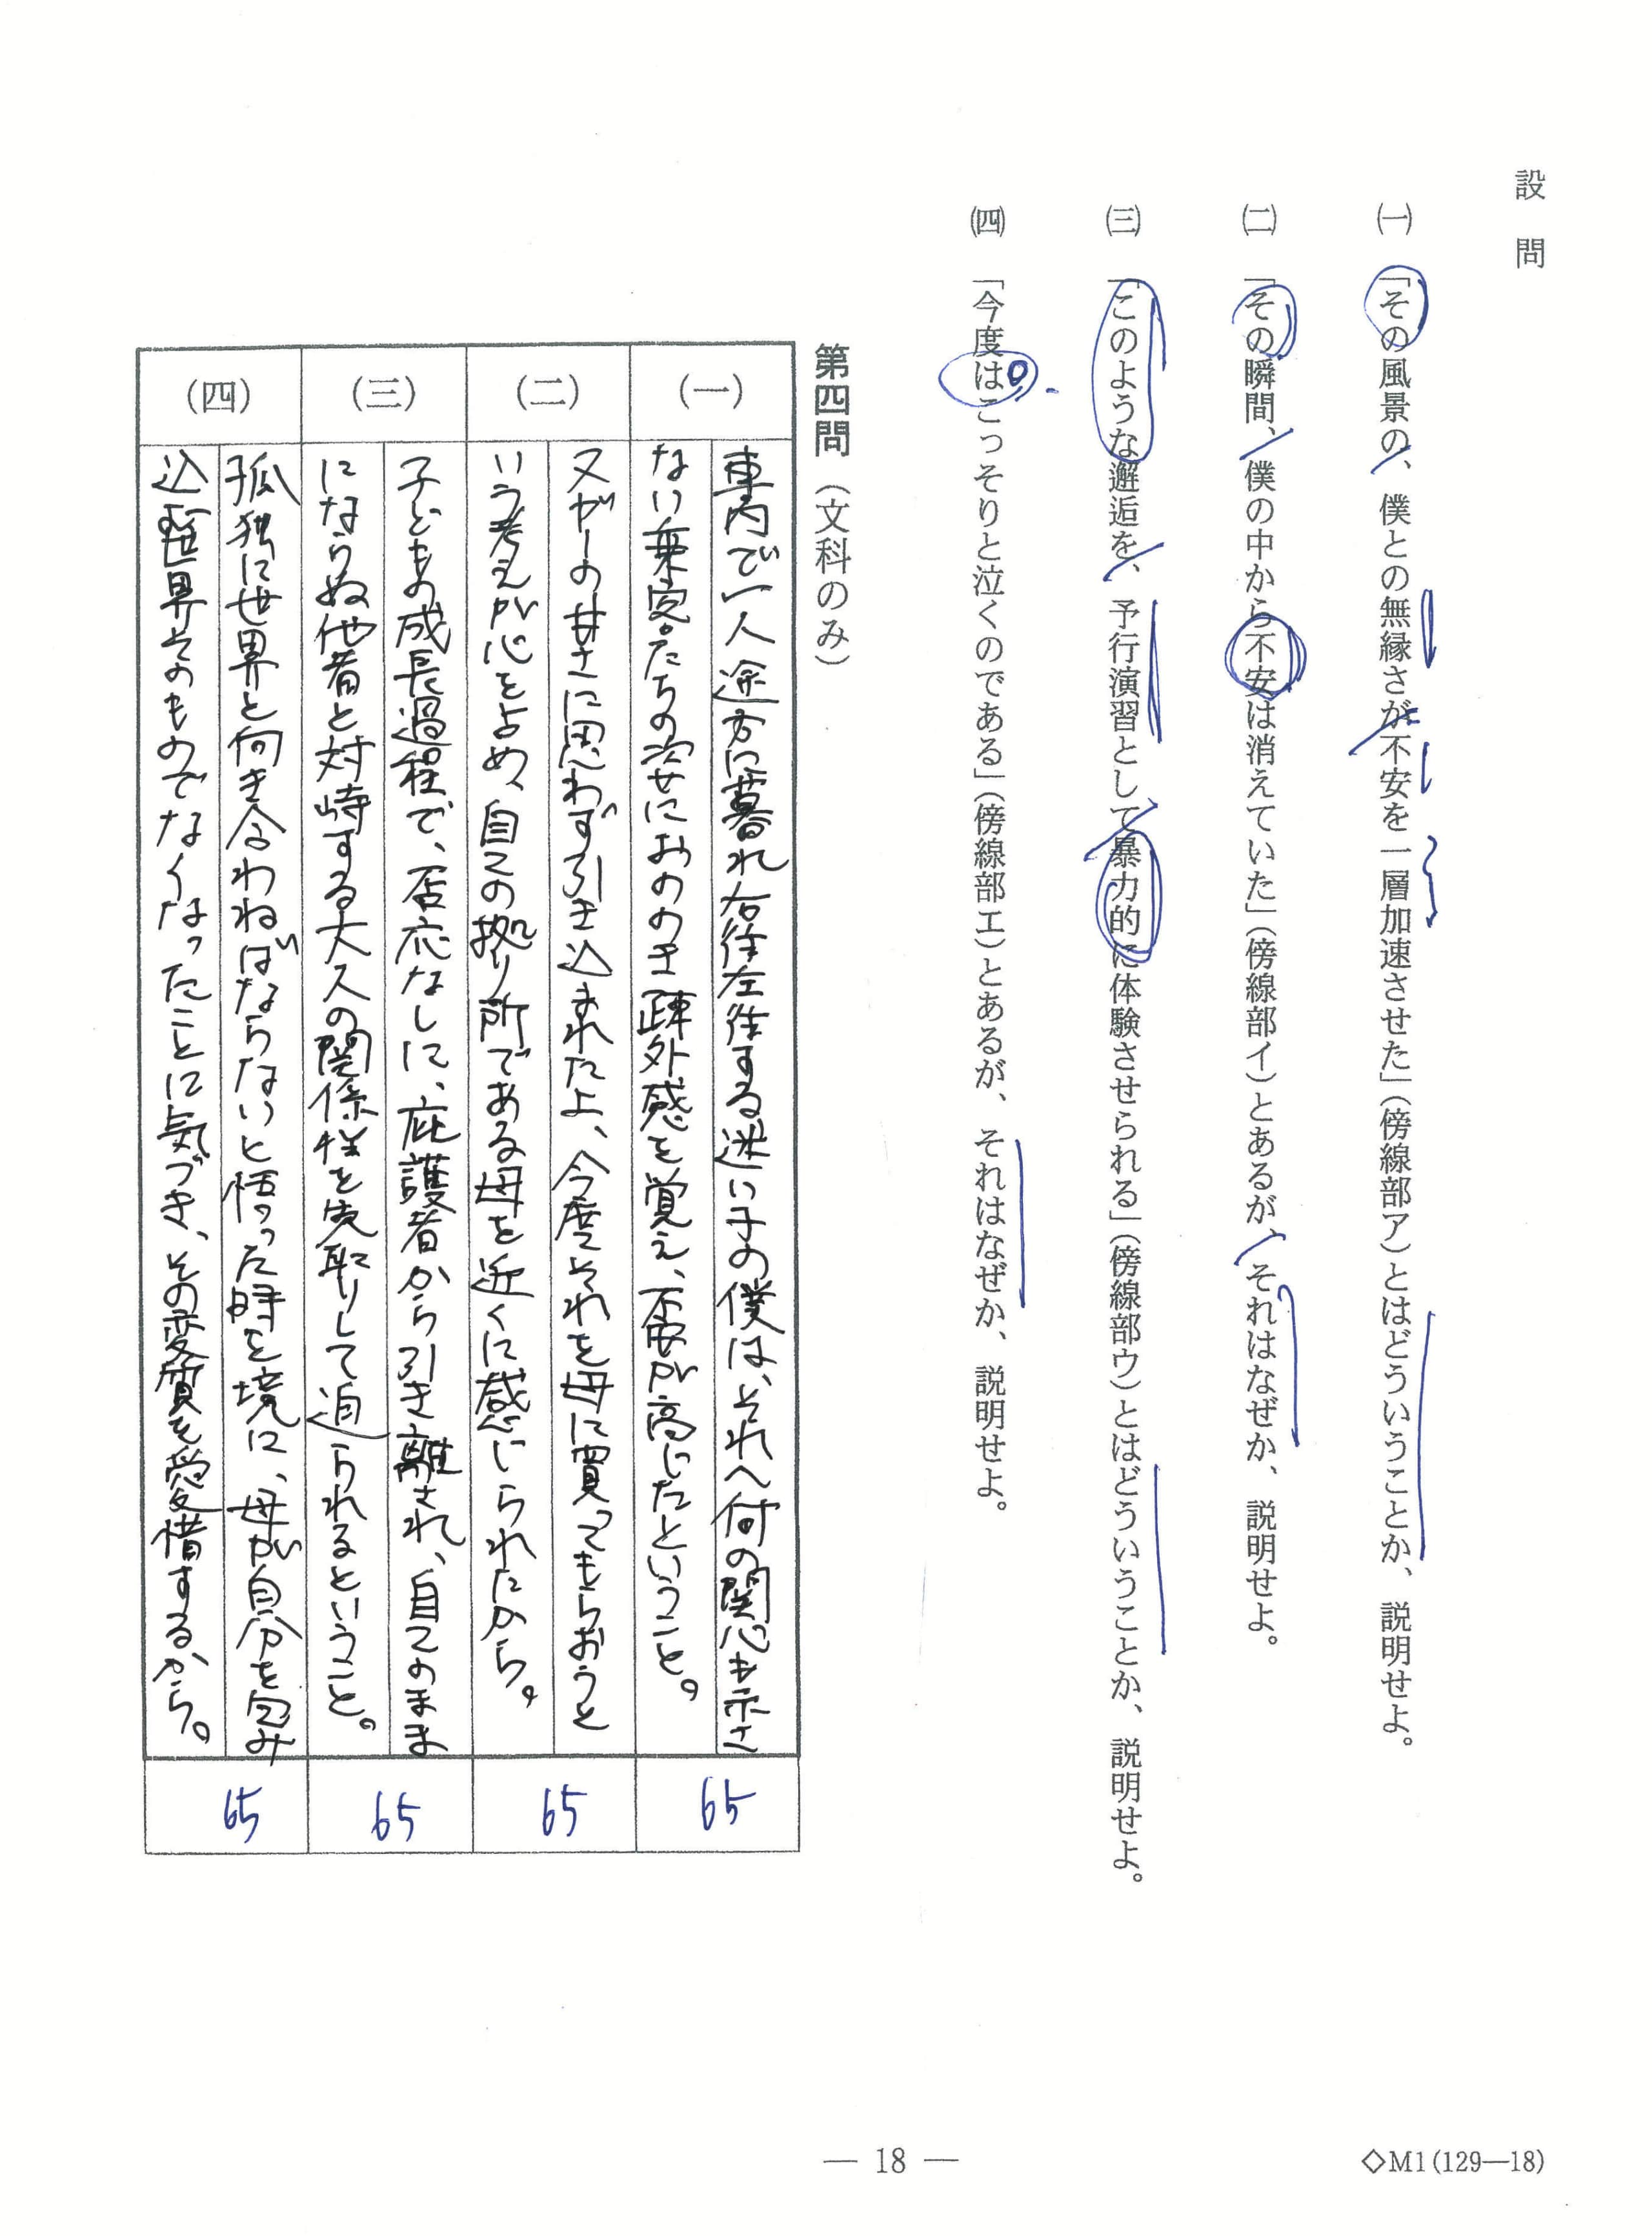 設問
㈠ 「その風景の、僕との無縁さが不安を一層加速させた」(傍線部ア)とはどういうことか、説明せよ。
㈡ 「その瞬間、僕の中から不安は消えていた」(傍線部イ)とあるが、それはなぜか、説明せよ。
㈢ 「このような邂逅を、予行演習として暴力的に体験させられる」(傍線部ウ)とはどういうことか、説明せよ。
㈣ 「今度はこっそりと泣くのである」(傍線部エ)とあるが、それはなぜか、説明せよ。
第四問(文科のみ)
(一)
車内で一人途方に暮れ右往左往する迷い子の僕は、それへ何の関心も示さ
ない乗客たちの姿におののき疎外感を覚え、不安が高じたということ。
65
(二)
ヌガーの甘さに思わず引き込まれた上、今度それを母に買ってもらおうと
いう考えが心を占め、自己の拠り所である母を近くに感じられたから。
65
(三)
子どもの成長過程で、否応なしに、庇護者から引き離され、自己のまま
にならぬ他者と対峙する大人の関係性を先取りして迫られるということ。
65
(四)
孤独に世界と向き合わねばならないと悟った時を境に、母が自分を包み
込む世界そのものでなくなったことに気づき、その変質を愛惜するから。
65
— 18 —
◇M1(129—18)